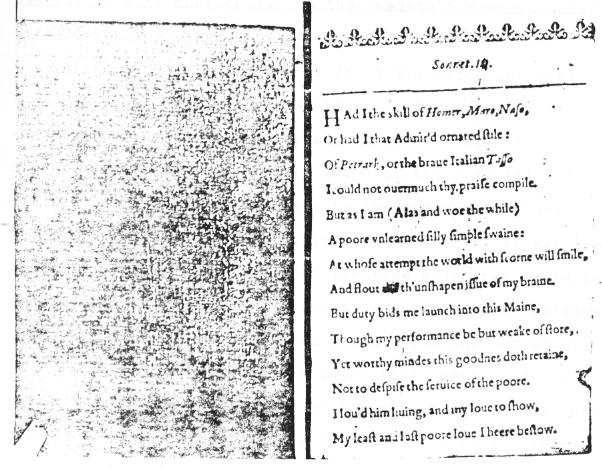 Sonnet.
HAd I the skill of Homer, Maro, Naso,
Or had I that Admir'd ornated stile:
Of Petrark, or the braue Italian Tasso
I could not ouermuch thy praise compile.
But as I am (Alas and woe the while)
A poore vnlearned silly simple swaine:
At whose attempt the world with scorne will smile,
And flout th'vnshapen issue of my braine.
But duty bids me launch into this Maine,
Though my performance be but weake of store,
Yet worthy mindes this goodnes doth retaine,
Not to despise the seruice of the poore.
I lou'd him liuing, and my loue to show,
My least and last poore loue I heere bestow.